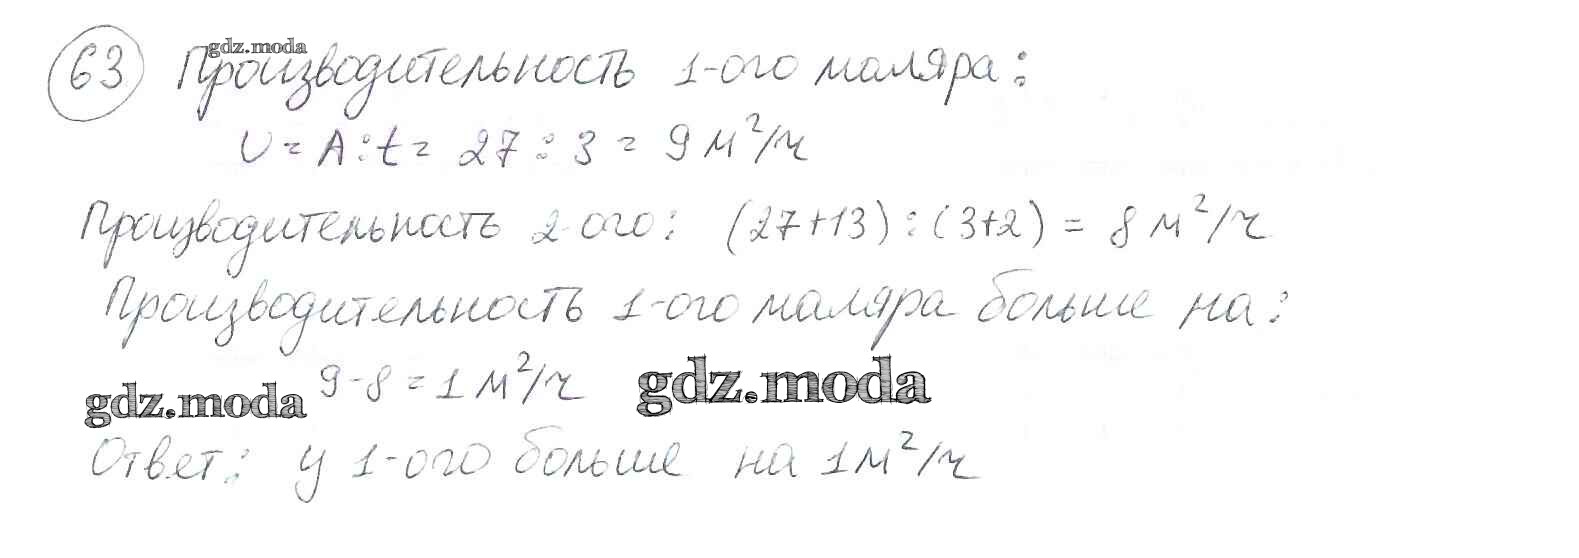 gdz.moda
63 Производительность 1-ого маляра:
υ = A : t = 27 : 3 = 9 м²/ч
Производительность 2-ого: (27+13) : (3+2) = 8 м²/ч
Производительность 1-ого маляра больше на:
9-8 = 1 м²/ч
gdz.moda gdz.moda
Ответ: у 1-ого больше на 1 м²/ч